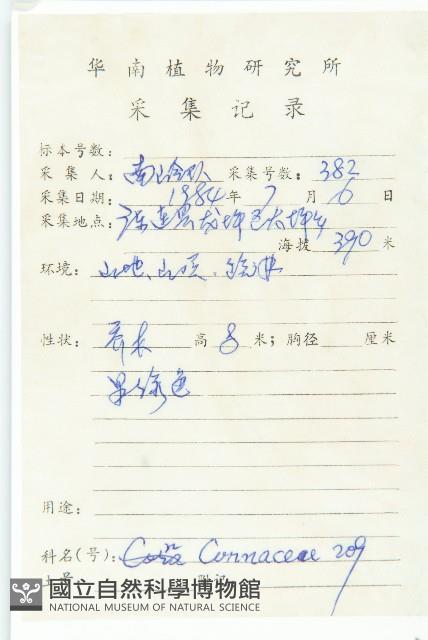 华南植物研究所
采集记录
标本号数:
采集人: 南岭队 采集号数: 382
采集日期: 1984年 7月 6日
采集地点: 连县
海拔 390 米
环境: 山地、山顶、
性状: 乔木 高 8 米; 胸径 厘米
果绿色
用途:
科名(号): Cornaceae 209
國立自然科學博物館
NATIONAL MUSEUM OF NATURAL SCIENCE